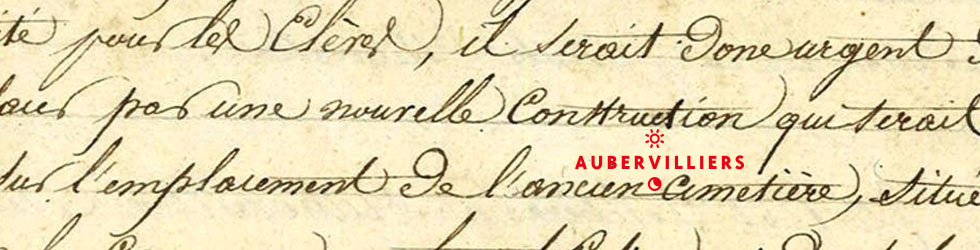 ité pour les Elèves, il serait donc urgent
par une nouvelle Construction qui serait
sur l'emplacement de l'ancien cimetière, situé
AUBERVILLIERS